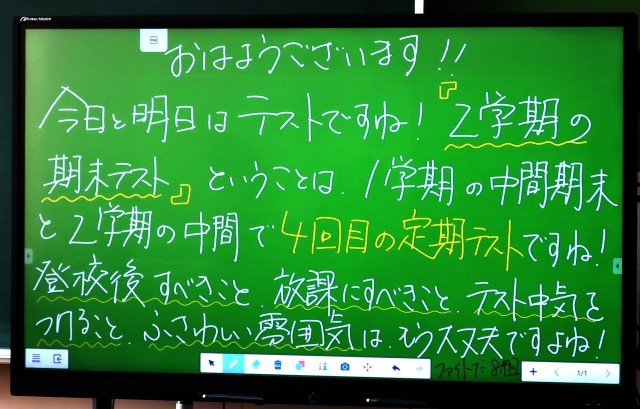 おはようございます!!
今日と明日はテストですね!『2学期の
期末テスト』ということは、1学期の中間期末
と2学期の中間で4回目の定期テストですね!
登校後すべきこと、放課にすべきこと、テスト中気を
つけること、ふさわしい雰囲気は、もう大丈夫ですよね!
1/1